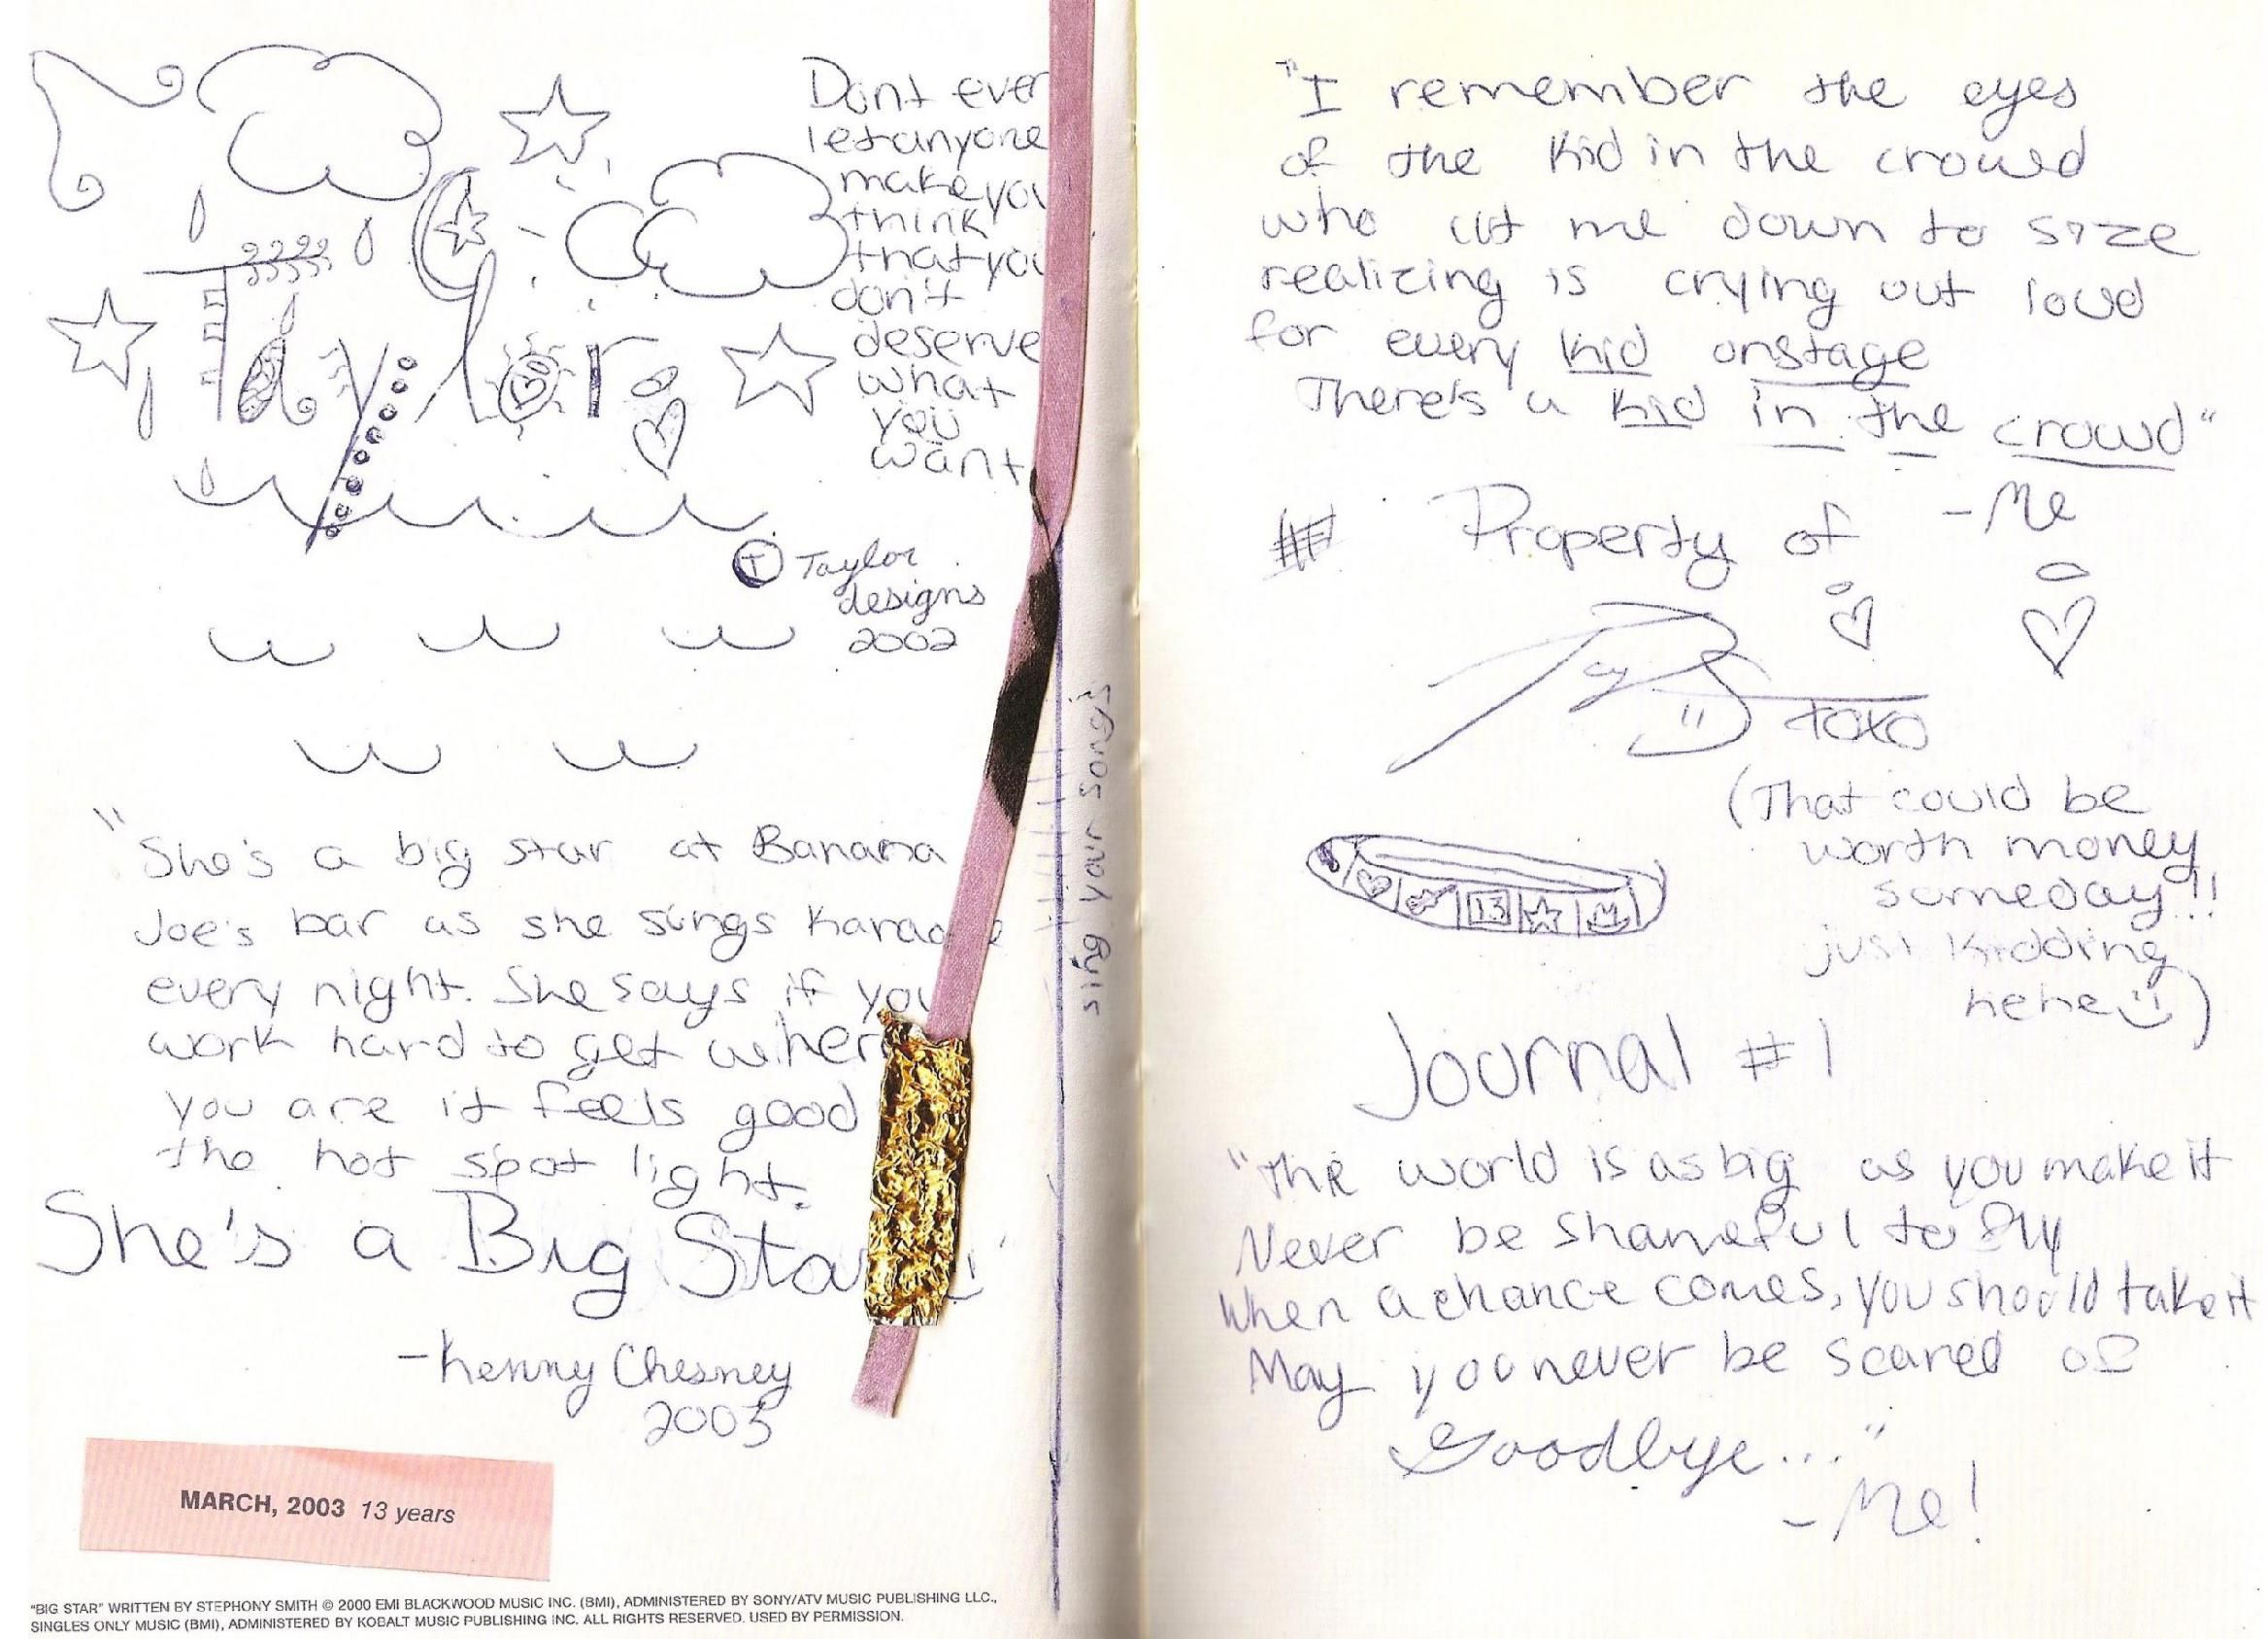 Taylor
Dont ever
let anyone
make you
think
that you
don't
deserve
what
you
want
T Taylor
designs
2002
"She's a big star at Banana
Joe's bar as she sings karaoke
every night. She says if you
work hard to get wher
you are it feels good
the hot spot light.
She's a Big Star
-Kenny Chesney
2003
MARCH, 2003 13 years
"BIG STAR" WRITTEN BY STEPHONY SMITH © 2000 EMI BLACKWOOD MUSIC INC. (BMI), ADMINISTERED BY SONY/ATV MUSIC PUBLISHING LLC.,
SINGLES ONLY MUSIC (BMI), ADMINISTERED BY KOBALT MUSIC PUBLISHING INC. ALL RIGHTS RESERVED. USED BY PERMISSION.
sing your songs
"I remember the eyes
of the kid in the crowd
who cut me down to size
realizing is crying out loud
for every kid onstage
There's a kid in the crowd"
-Me
# Property of
Tay
xoxo
(That could be
worth money
someday!!
just kidding
hehe :))
13
Journal #1
"The world is as big as you make it
Never be shameful to fly
When a chance comes, you should take it
May you never be scared of
Goodbye..."
-Me!